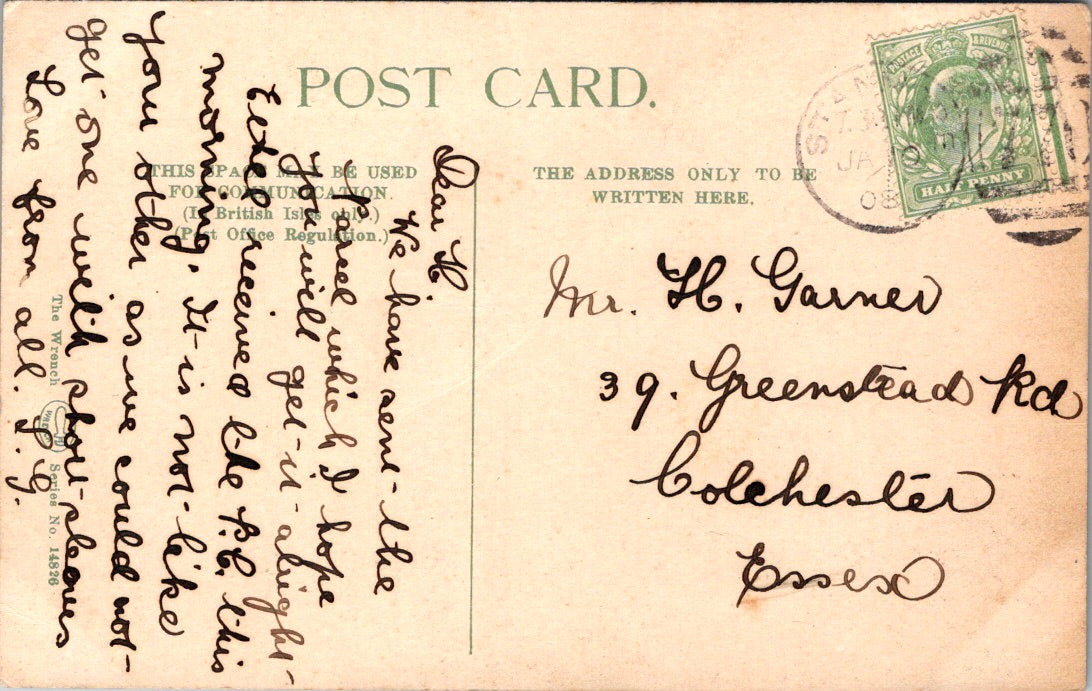 POST CARD.
THIS SPACE MAY BE USED
FOR COMMUNICATION.
(In British Isles only.)
(Post Office Regulation.)
THE ADDRESS ONLY TO BE
WRITTEN HERE.
POSTAGE & REVENUE
HALF PENNY
STAM
7.30
JA
08
Dear H
We have sent the
parcel which I hope
you will get it alright
Edel received the P.C. this
morning. It is not like
your other as we could not
get one with short sleeves
Love from all. G.
The Wrench Series No. 14826
Mr. H. Garner
39. Greenstead Rd
Colchester
Essex